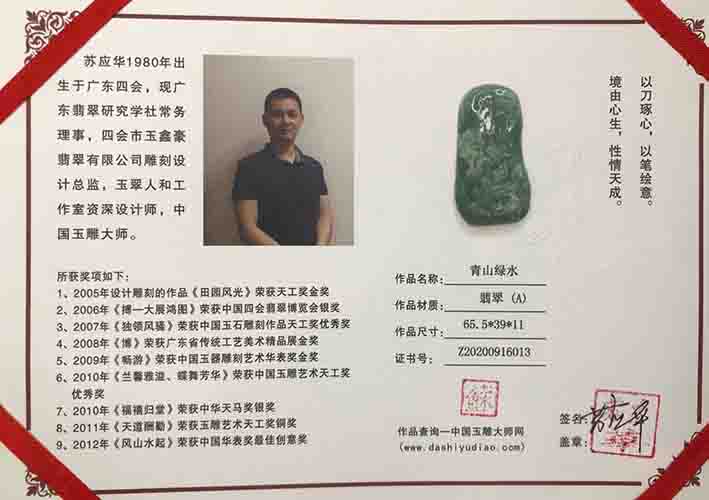 苏应华1980年出
生于广东四会，现广
东翡翠研究学社常务
理事，四会市玉鑫豪
翡翠有限公司雕刻设
计总监，玉翠人和工
作室资深设计师，中
国玉雕大师。
以刀琢心，以笔绘意。
境由心生，性情天成。
所获奖项如下：
1、2005年设计雕刻的作品《田园风光》荣获天工奖金奖
2、2006年《博一大展鸿图》荣获中国四会翡翠博览会银奖
3、2007年《独领风骚》荣获中国玉石雕刻作品天工奖优秀奖
4、2008年《博》荣获广东省传统工艺美术精品展金奖
5、2009年《畅游》荣获中国玉器雕刻艺术华表奖金奖
6、2010年《兰馨雅溢、蝶舞芳华》荣获中国玉雕艺术天工奖
优秀奖
7、2010年《福禧归堂》荣获中华天马奖银奖
8、2011年《天道酬勤》荣获玉雕艺术天工奖铜奖
9、2012年《风山水起》荣获中国华表奖最佳创意奖
作品名称：青山绿水
作品材质：翡翠（A）
作品尺寸：65.5*39*11
证书号：Z20200916013
作品查询—中国玉雕大师网
(www.dashiyudiao.com)
签名：苏应华
盖章：